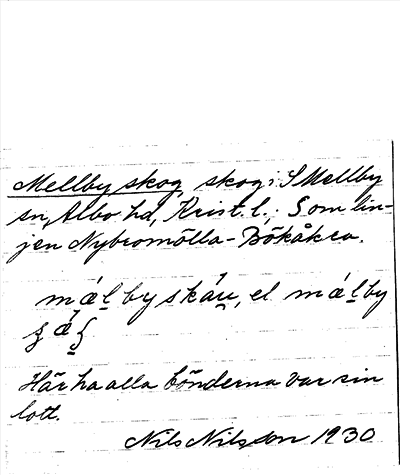 Mellby skog, skog i S Mellby
sn, Albo hd, Krist. l.; S om lin-
jen Nybromölla - Bökåkra.
mǽl̲by skáu̲, el mǽl̲by
Här ha alla bönderna var sin
lott.
Nils Nilsson 1930